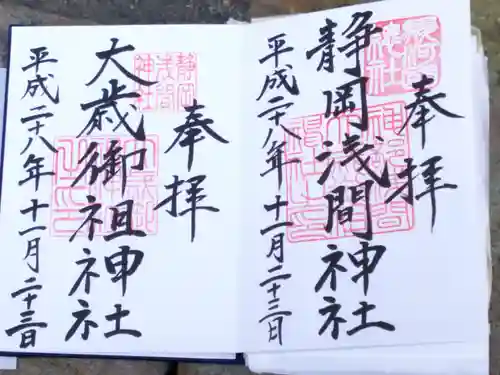 奉拝
静岡浅間神社
平成二十八年十一月二十三日
奉拝
静岡
浅間
神社
大歳御祖神社
平成二十八年十一月二十三日